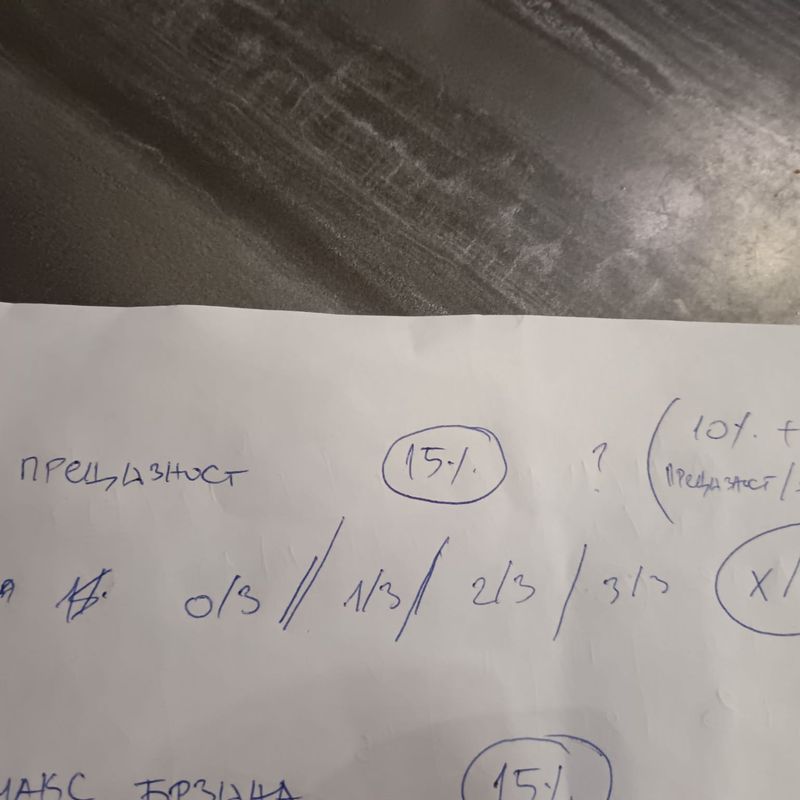 ПРЕЦИЗНОСТ 15% ? (10% +
ПРЕЦИЗНОСТ /
0/3 // 1/3 // 2/3 / 3/3 X/
МАКС БРЗИНА 15%